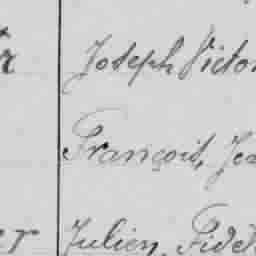 Joseph Victo
François, Je
er Julien, Fidè